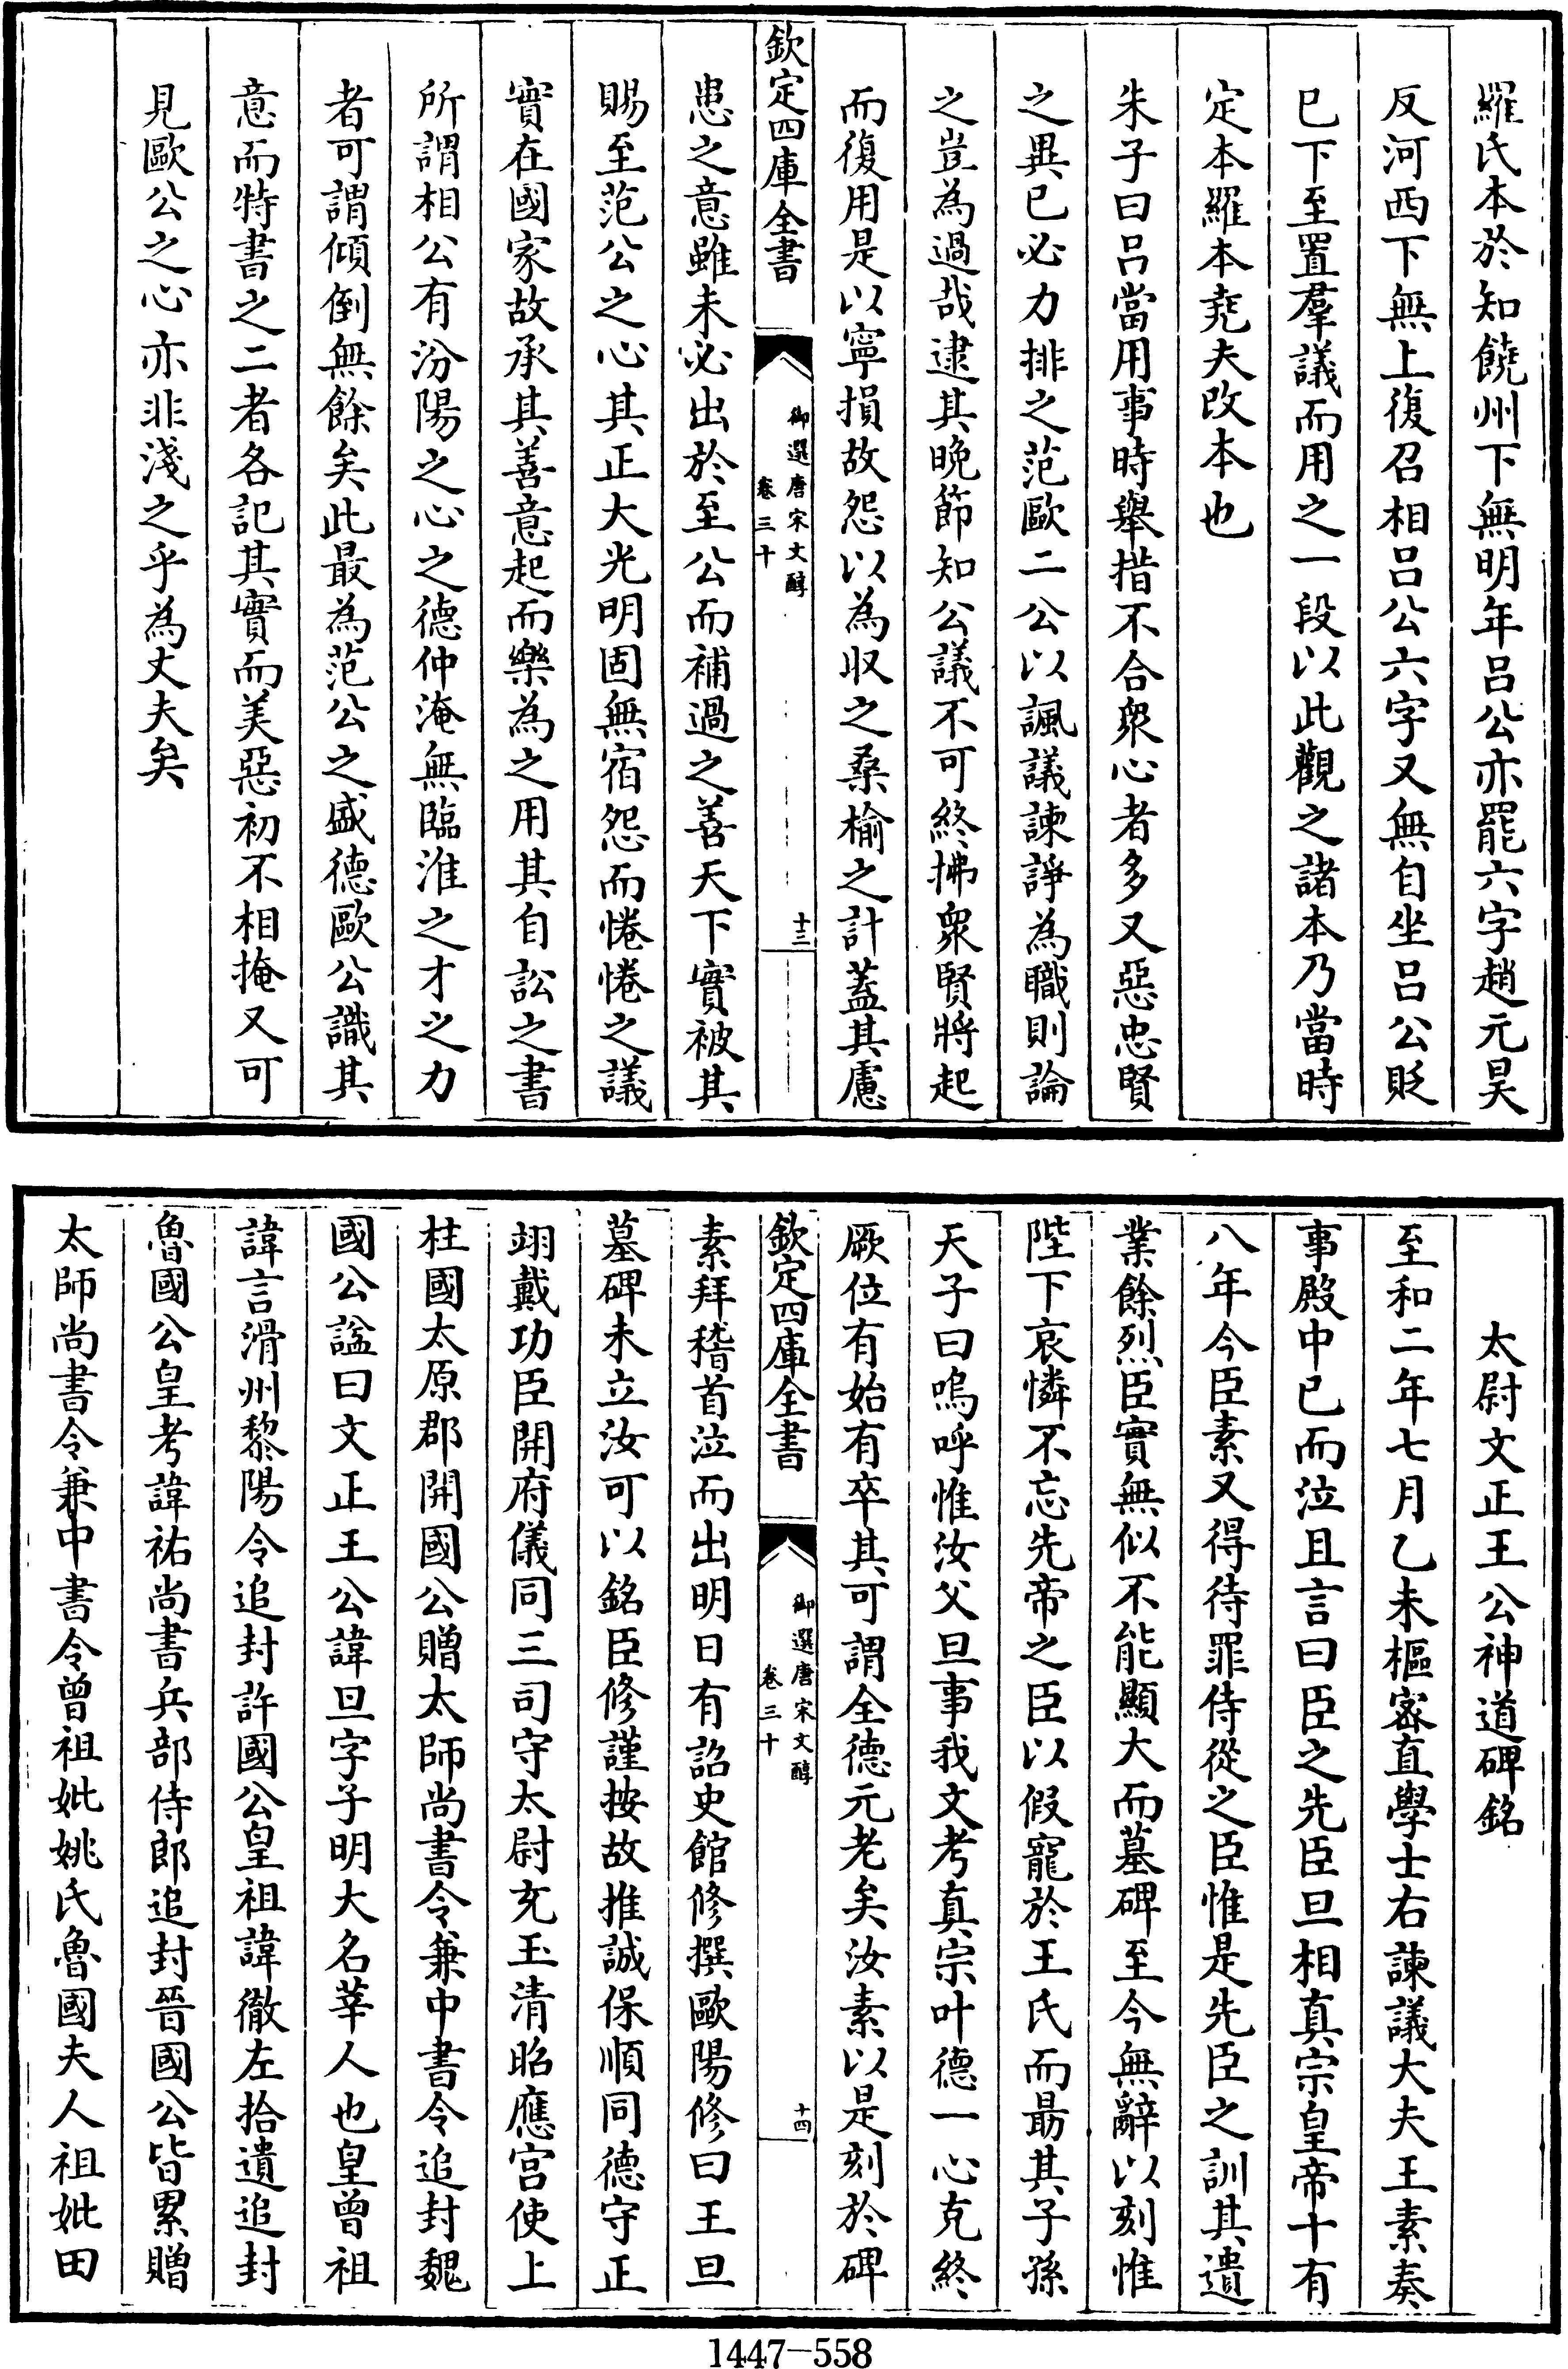 羅氏本於知饒州下無明年呂公亦罷六字趙元昊
反河西下無上復召相呂公六字又無自坐呂公貶
已下至置羣議而用之一段以此觀之諸本乃當時
定本羅本堯夫改本也
朱子曰呂當用事時舉措不合衆心者多又惡忠賢
之異已必力排之范歐二公以諷議諫諍為職則論
之豈為過哉逮其晚節知公議不可終拂衆賢將起
而復用是以寧損故怨以為收之桑榆之計蓋其慮
欽定四庫全書
御選唐宋文醇
卷三十
十三
患之意雖未必出於至公而補過之善天下實被其
賜至范公之心其正大光明固無宿怨而惓惓之議
實在國家故承其善意起而樂為之用其自訟之書
所謂相公有汾陽之心之德仲淹無臨淮之才之力
者可謂傾倒無餘矣此最為范公之盛德歐公識其
意而特書之二者各記其實而美惡初不相掩又可
見歐公之心亦非淺之乎為丈夫矣
太尉文正王公神道碑銘
至和二年七月乙未樞密直學士右諫議大夫王素奏
事殿中已而泣且言曰臣之先臣旦相真宗皇帝十有
八年今臣素又得待罪侍從之臣惟是先臣之訓其遺
業餘烈臣實無似不能顯大而墓碑至今無辭以刻惟
陛下哀憐不忘先帝之臣以假寵於王氏而勗其子孫
天子曰嗚呼惟汝父旦事我文考真宗叶德一心克終
厥位有始有卒其可謂全德元老矣汝素以是刻於碑
欽定四庫全書
御選唐宋文醇
卷三十
十四
素拜稽首泣而出明日有詔史館修撰歐陽修曰王旦
墓碑未立汝可以銘臣修謹按故推誠保順同德守正
翊戴功臣開府儀同三司守太尉充玉清昭應宮使上
柱國太原郡開國公贈太師尚書令兼中書令追封魏
國公諡曰文正王公諱旦字子明大名莘人也皇曾祖
諱言滑州黎陽令追封許國公皇祖諱徹左拾遺追封
魯國公皇考諱祐尚書兵部侍郎追封晉國公皆累贈
太師尚書令兼中書令曾祖妣姚氏魯國夫人祖妣田
1447-558